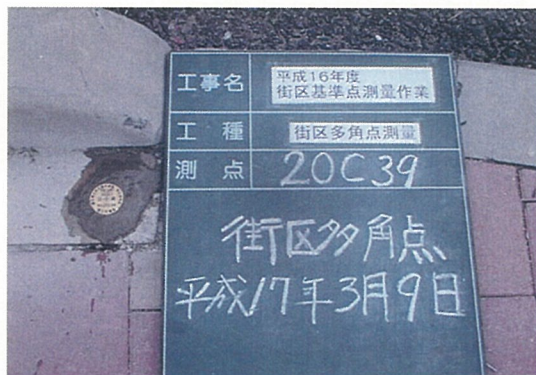 工事名
平成16年度
街区基準点測量作業
工種
街区多角点測量
測点
20C39
街区多角点
平成17年3月9日